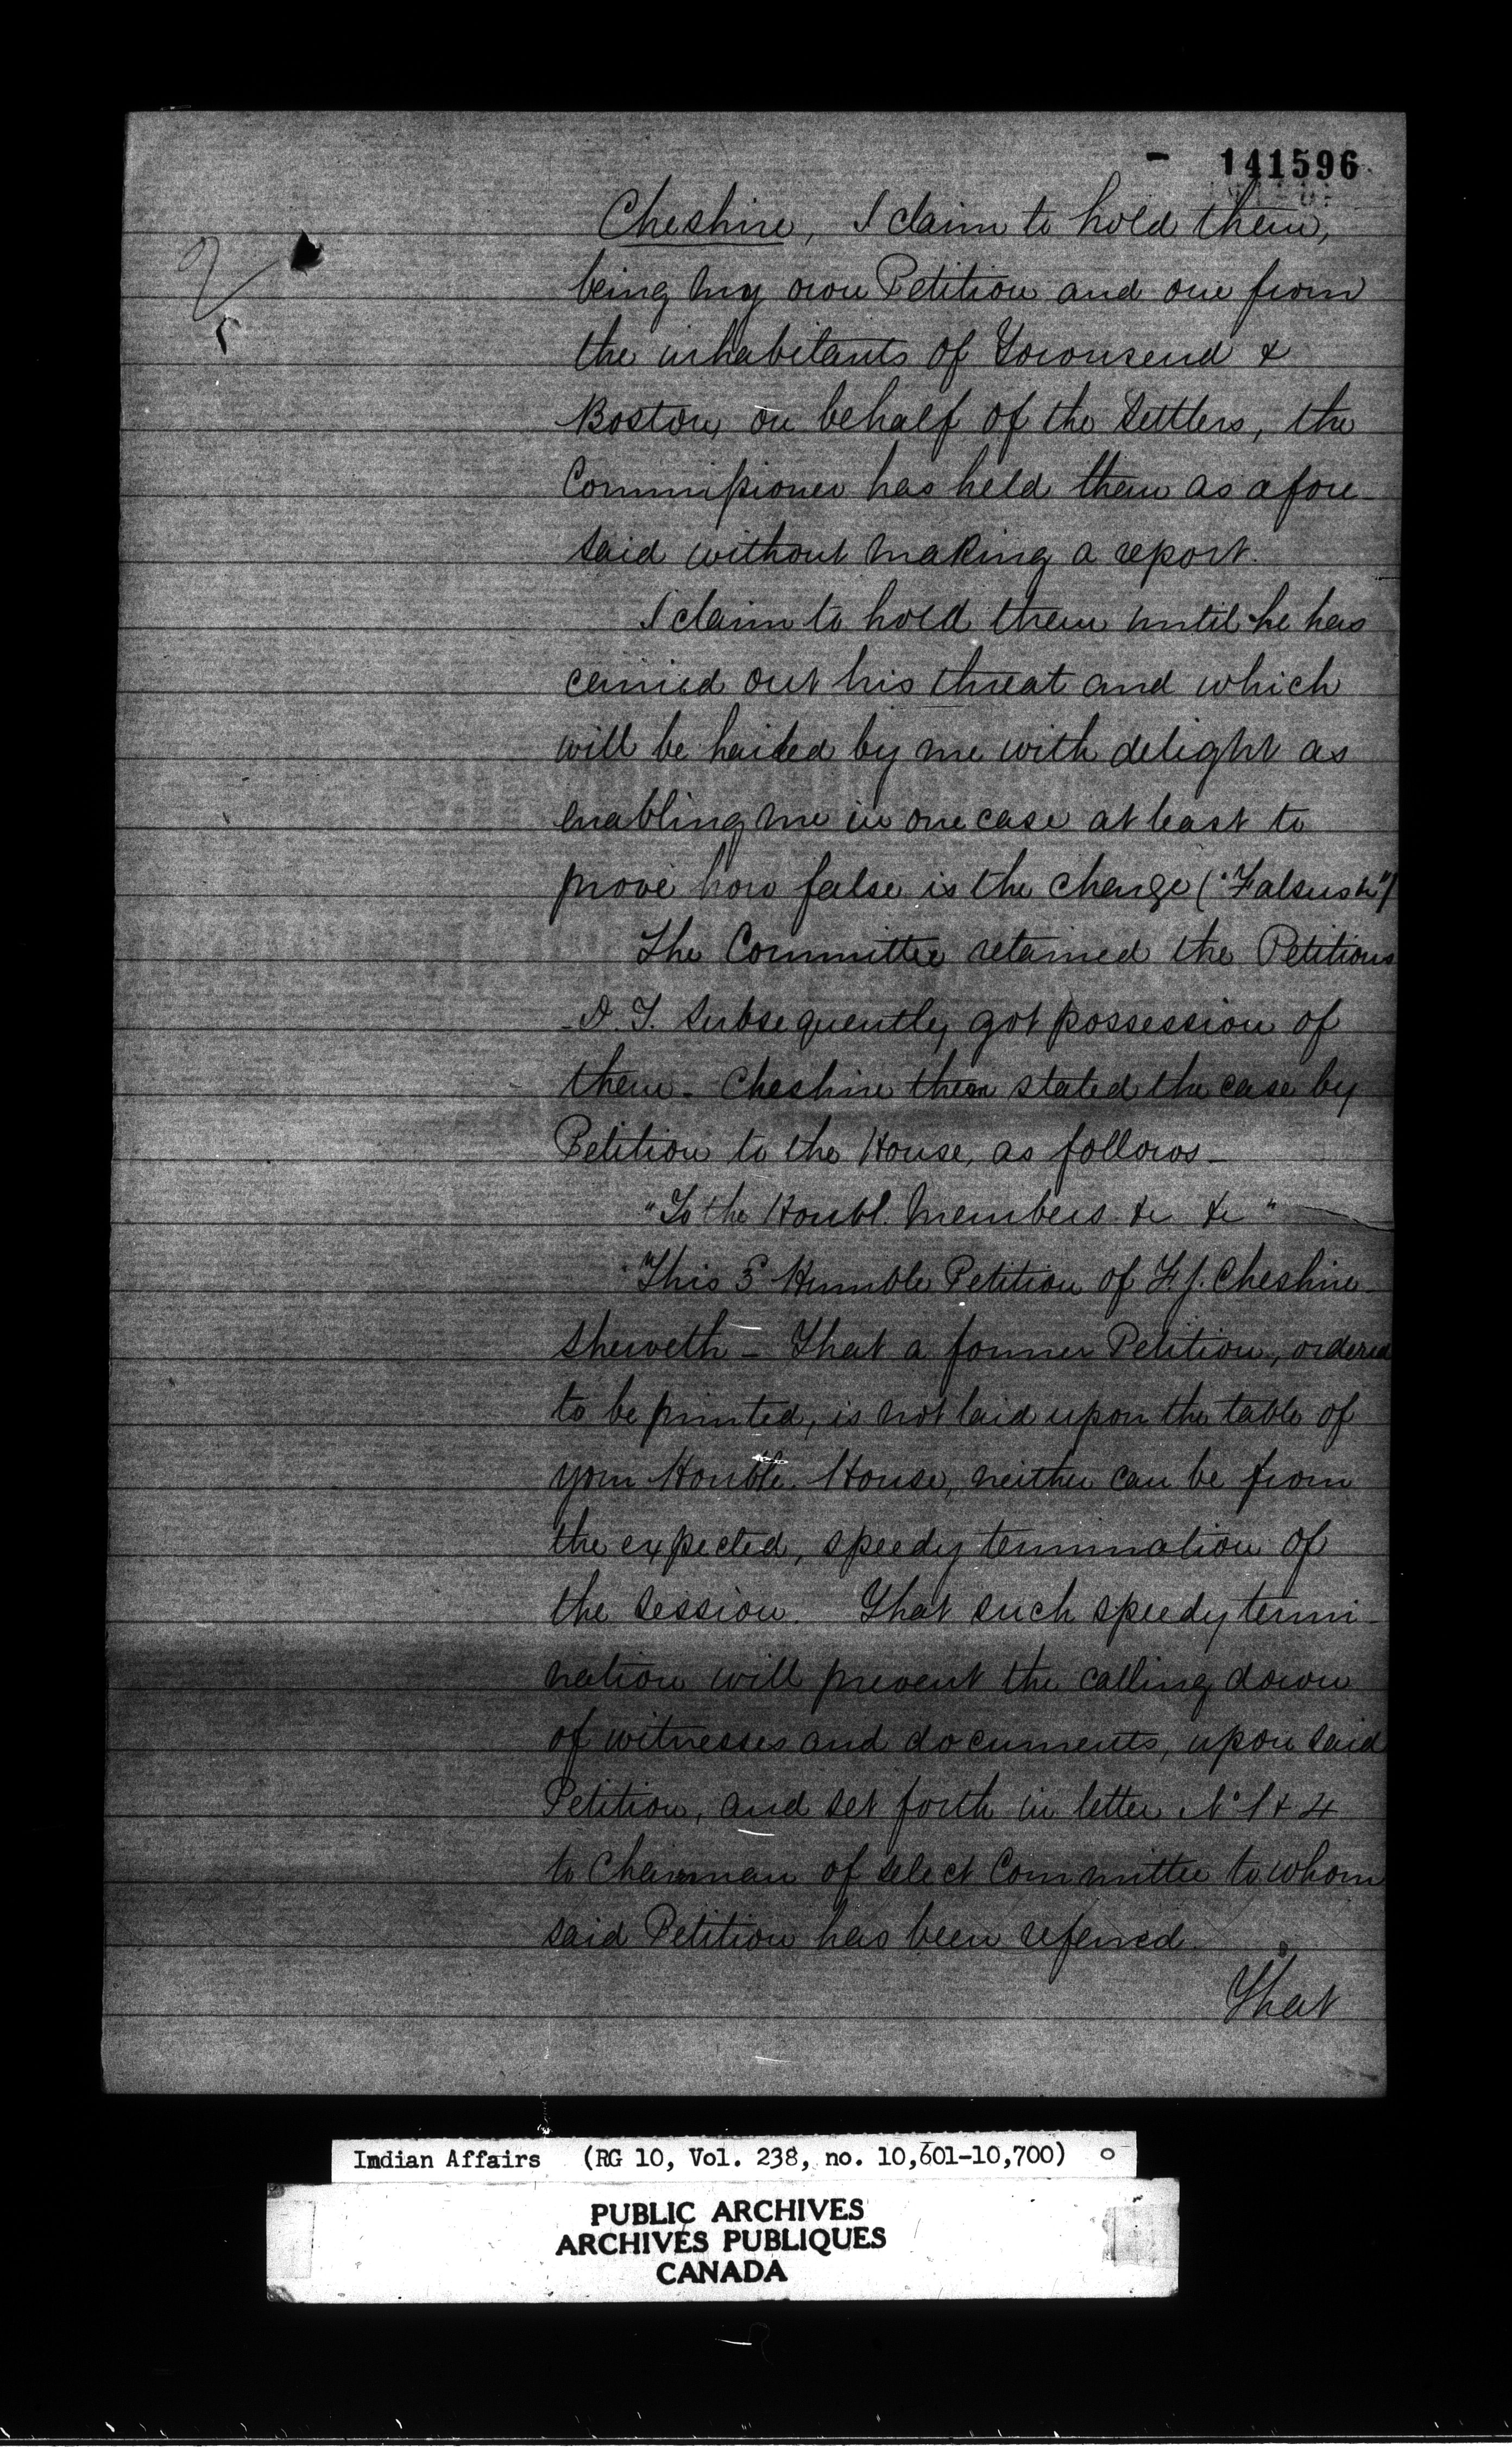 - 141596
Cheshire, I claim to hold them,
being my own Petition and one from
the inhabitants of Townsend &
Boston, on behalf of the Settlers, the
Commissioner has held them as afore-
said without making a report.
I claim to hold them until he has
carried out his threat and which
will be hailed by me with delight as
enabling me in one case at least to
prove how false is the charge (
The Committee retained the Petitions
- D. T. subsequently got possession of
them - Cheshire then stated the case by
Petition to the House, as follows -
"To the Honbl. Members &c &c "
"This 3d Humble Petition of F. J. Cheshire
Sheweth - That a former Petition, ordered
to be printed, is not laid upon the table of
your Honble. House, neither can be from
the expected, speedy termination of
the Session. That such speedy termi-
nation will prevent the calling down
of witnesses and documents, upon said
Petition, and set forth in letter No 1 & 4
to Chairman of select Committee to whom
said Petition has been referred.
That
Indian Affairs (RG 10, Vol. 238, no. 10,601-10,700)
PUBLIC ARCHIVES
ARCHIVES PUBLIQUES
CANADA